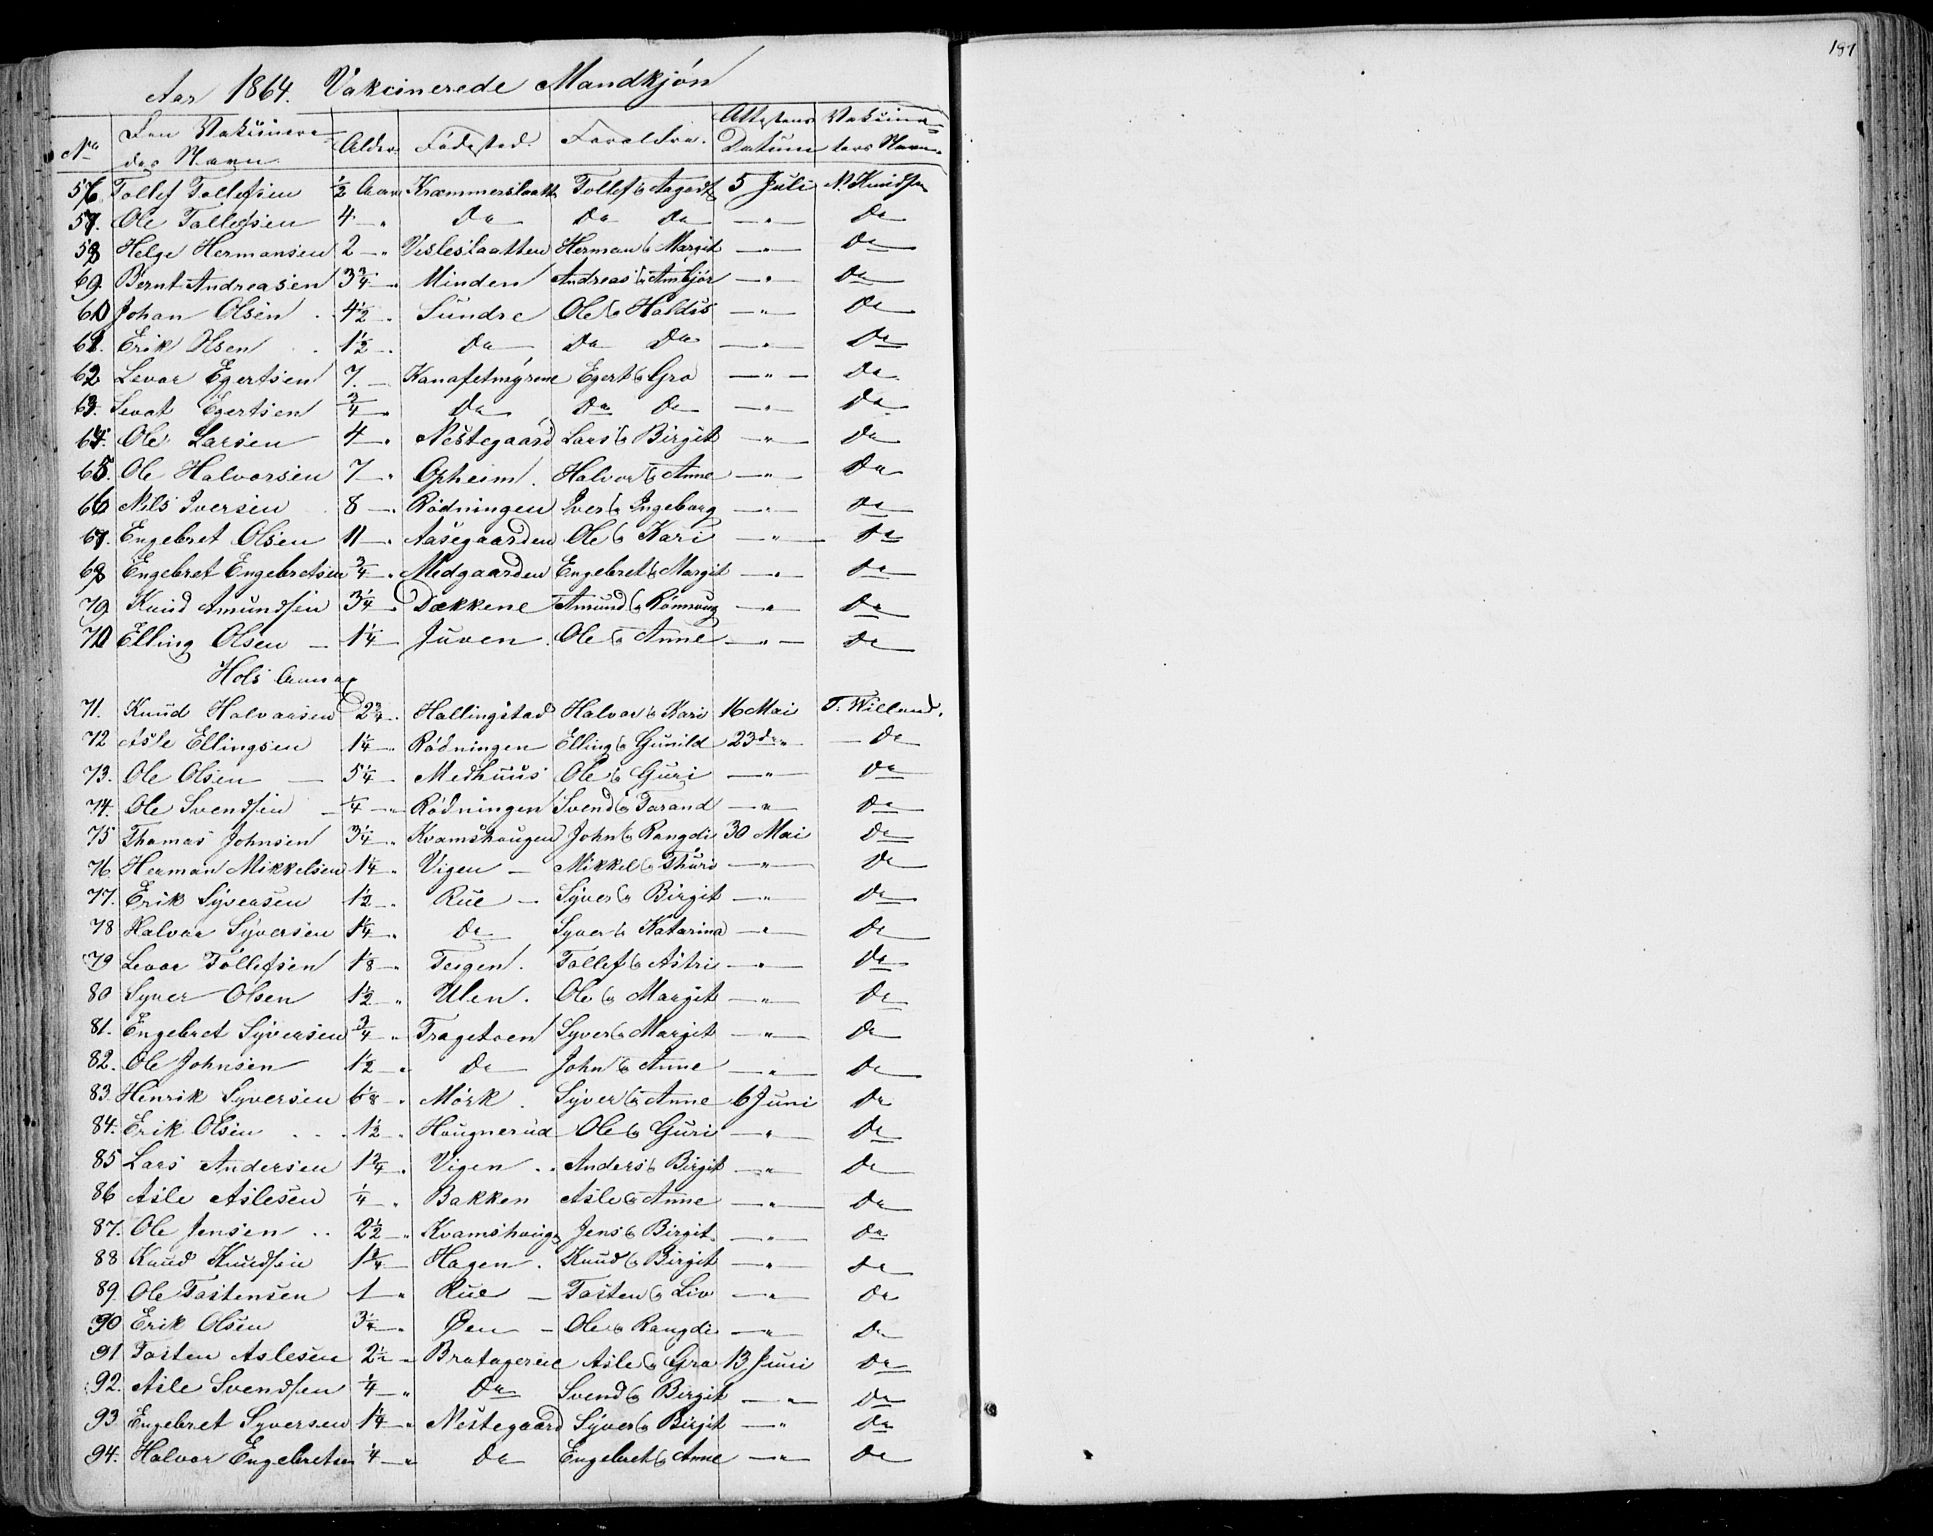 187
Aar 1864. Vakcinerede Mandkjøn
No | Den Vakcinere-des Navn | Alder | Fødested. | Foraldre. | Attestens Datum | Vakcina-tørs Navn.
56 Tollef Tollefsen ½ Aar Kræmmerslaatt Tollef & Aagodt 5 Juli N. Knudsen
57. Ole Tollefsen 4 — " Do Do Do — " — Do
58 Helge Hermansen 2 — " Vesleslaatten Herman & Margit — " — Do
69. Bernt Andreasen 3¾ — " Minden Andreas & Ambjør — " — Do
60 Johan Olsen . 4½ — " Sundre Ole & Haldis — " — Do
61. Erik Olsen . 1½ — . Do Do Do — " — Do
62 Levor Egertsen 7. — Kanafetmyrene Egert & Gro — " — Do
63. Sevat Egertsen ¾ — " Do Do Do — " — Do
64. Ole Larsen 4 — " Nestegaard Lars & Birgit — " — Do
65. Ole Halvorsen 7 — " Opheim. Halvor & Anne — " — Do
66 Nils Iversen 8 — " Rødningen Iver & Ingeborg — " — Do
67. Engebret Olsen 11 — " Aasegaarden Ole & Kari — " — Do
68 Engebret Engebretsen ¾ — " Medgaarden Engebret & Margit — " — Do
79. Knud Amundsen 3¼ — " Dækkene Amund & Rønnoug — " — Do
70 Elling Olsen — 1¼ — Juven. Ole & Anne — " — Do
Hols Annex
71. Knud Halvorsen 2¾ — . Hallingstad Halvor & Kari 16 Mai T. Willand.
72 Asle Ellingsen 1¼ — " Rødningen Elling & Gunild 23 do " — Do
73. Ole Olsen — 5¼ — . Medhuus Ole & Guri — " — Do
74. Ole Svendsen — ¼ — " Rødningen Svend & Torand — " — Do
75 Thomas Johnsen 3¼ — " Kvamshougen John & Rangdi 30 Mai Do
76 Herman Mikkelsen 1¼ " Vigen — Mikkel & Thuri — " — Do
77. Erik Syversen 1½ — . Rue — Syver & Birgit — " — Do
78 Halvor Syversen 1¼ — . Do Syver & Katarina — " — Do
79 Levor Tollefsen 1⅛ — " Teigen. Tollef & Astri — " — Do
80 Syver Olsen 1½ — " Ulen. Ole & Margit — " — Do
81. Engebret Syversen ¾ — " Tragetoen Syver & Margit — " — Do
82. Ole Johnsen 1½ — " Do John & Anne — " — Do
83. Henrik Syversen 6⅛ — " Mørk . Syver & Anne 6 Juni Do
84. Erik Olsen . . . 1½ — " Hougnerud Ole & Guri — " — Do
85 Lars Andersen 1¾ — . Vigen .. Anders & Birgit — " — Do
86 Asle Aslesen ¼ — " Bakken Asle & Anne — " — Do
87. Ole Jensen .. 2½ — " Kvamshoug Jens & Birgit. — " — Do
88 Knud Knudsen 1¾ — Hagen . Knud & Birgit — " — Do
89. Ole Tostensen 1 — " Rue — Tosten & Liv — " — Do
90 Erik Olsen 3¼ — " Øen — Ole & Rangdi — " — Do
91 Tosten Aslesen 2½ — " Bratagereie Asle & Gro 13 Juni Do
92. Asle Svendsen ¼ — " Do Svend & Birgit — " Do
93. Engebret Syversen 1¼ — " Nestegaard Syver & Birgit — " Do
94. Halvor Engebretsen ¼ — " Do Engebret & Anne — " — Do